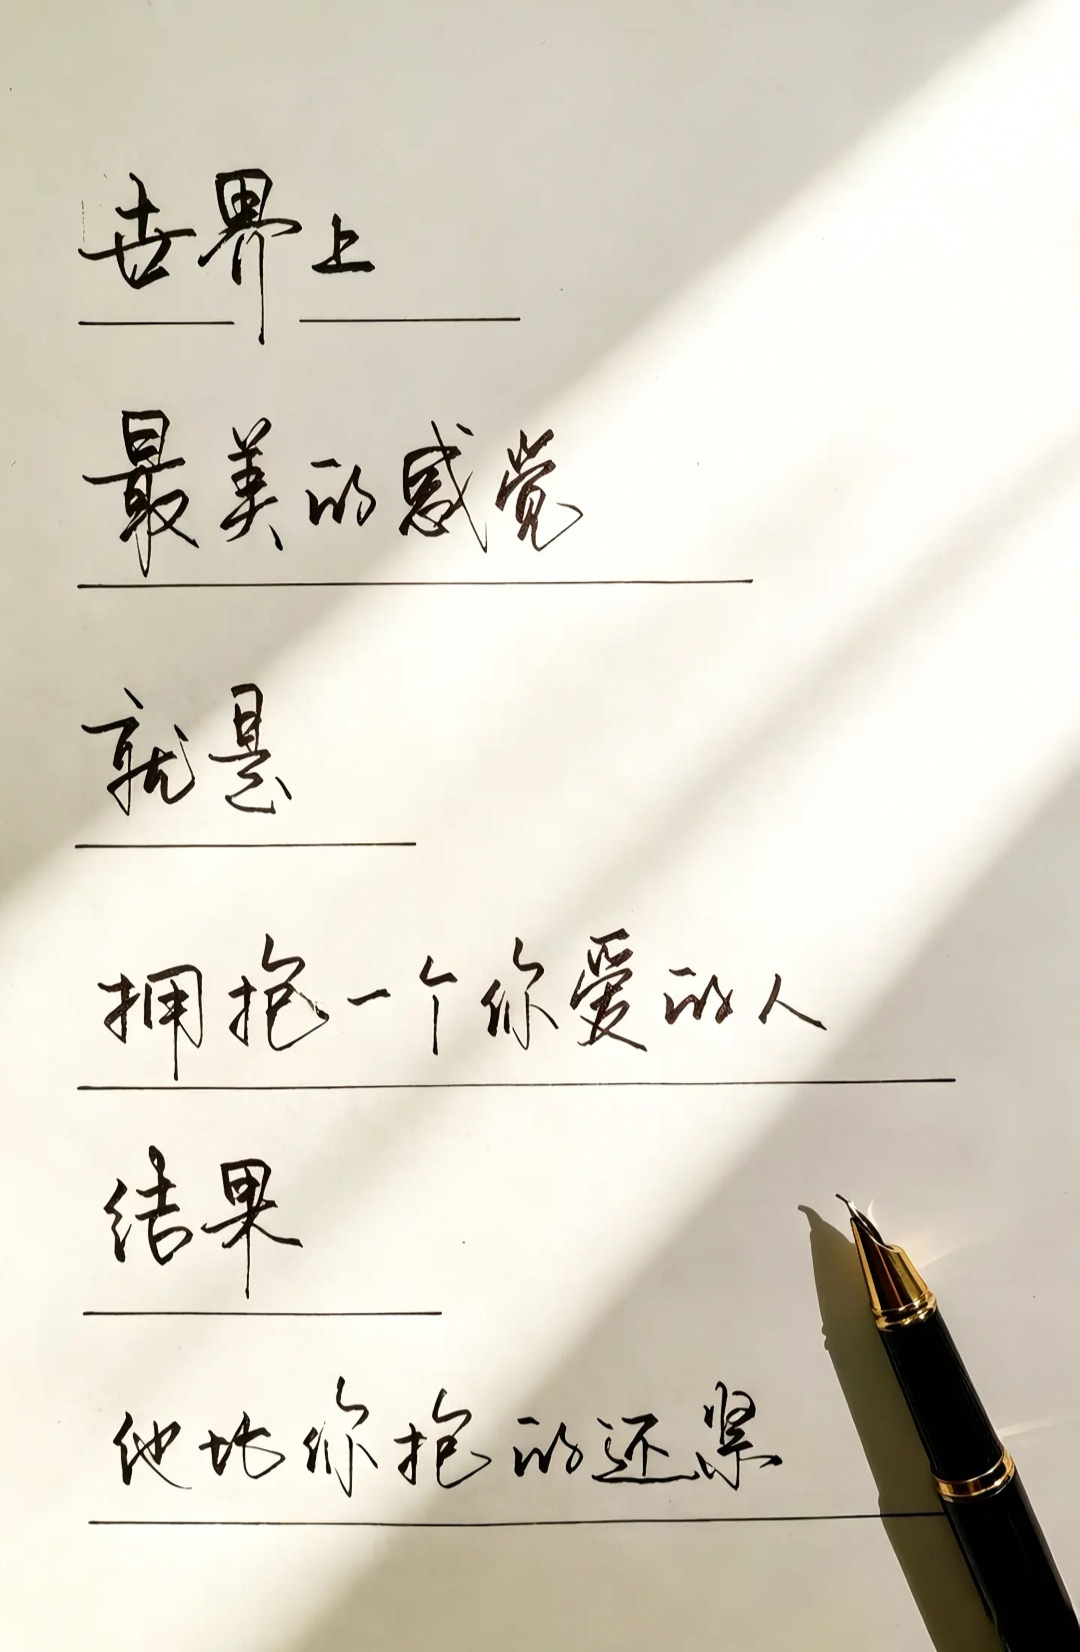 世界上
最美的感觉
就是
拥抱一个你爱的人
结果
他比你抱的还紧